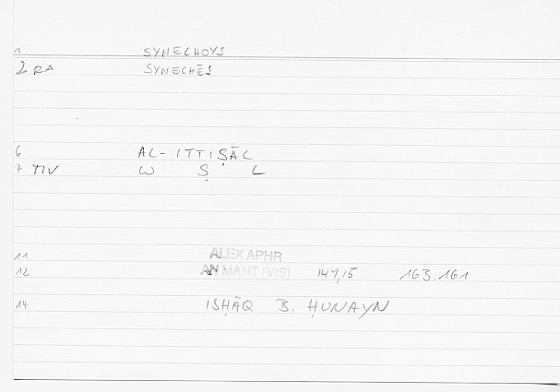 1 SYNECHOYS
2 RA SYNECHĒS
6 AL-ITTIṢĀL
7 TIV W Ṣ L
11 ALEX APHR
12 AN MANT [VIS] 147,15 163.161
14 ISḤĀQ B. ḤUNAYN